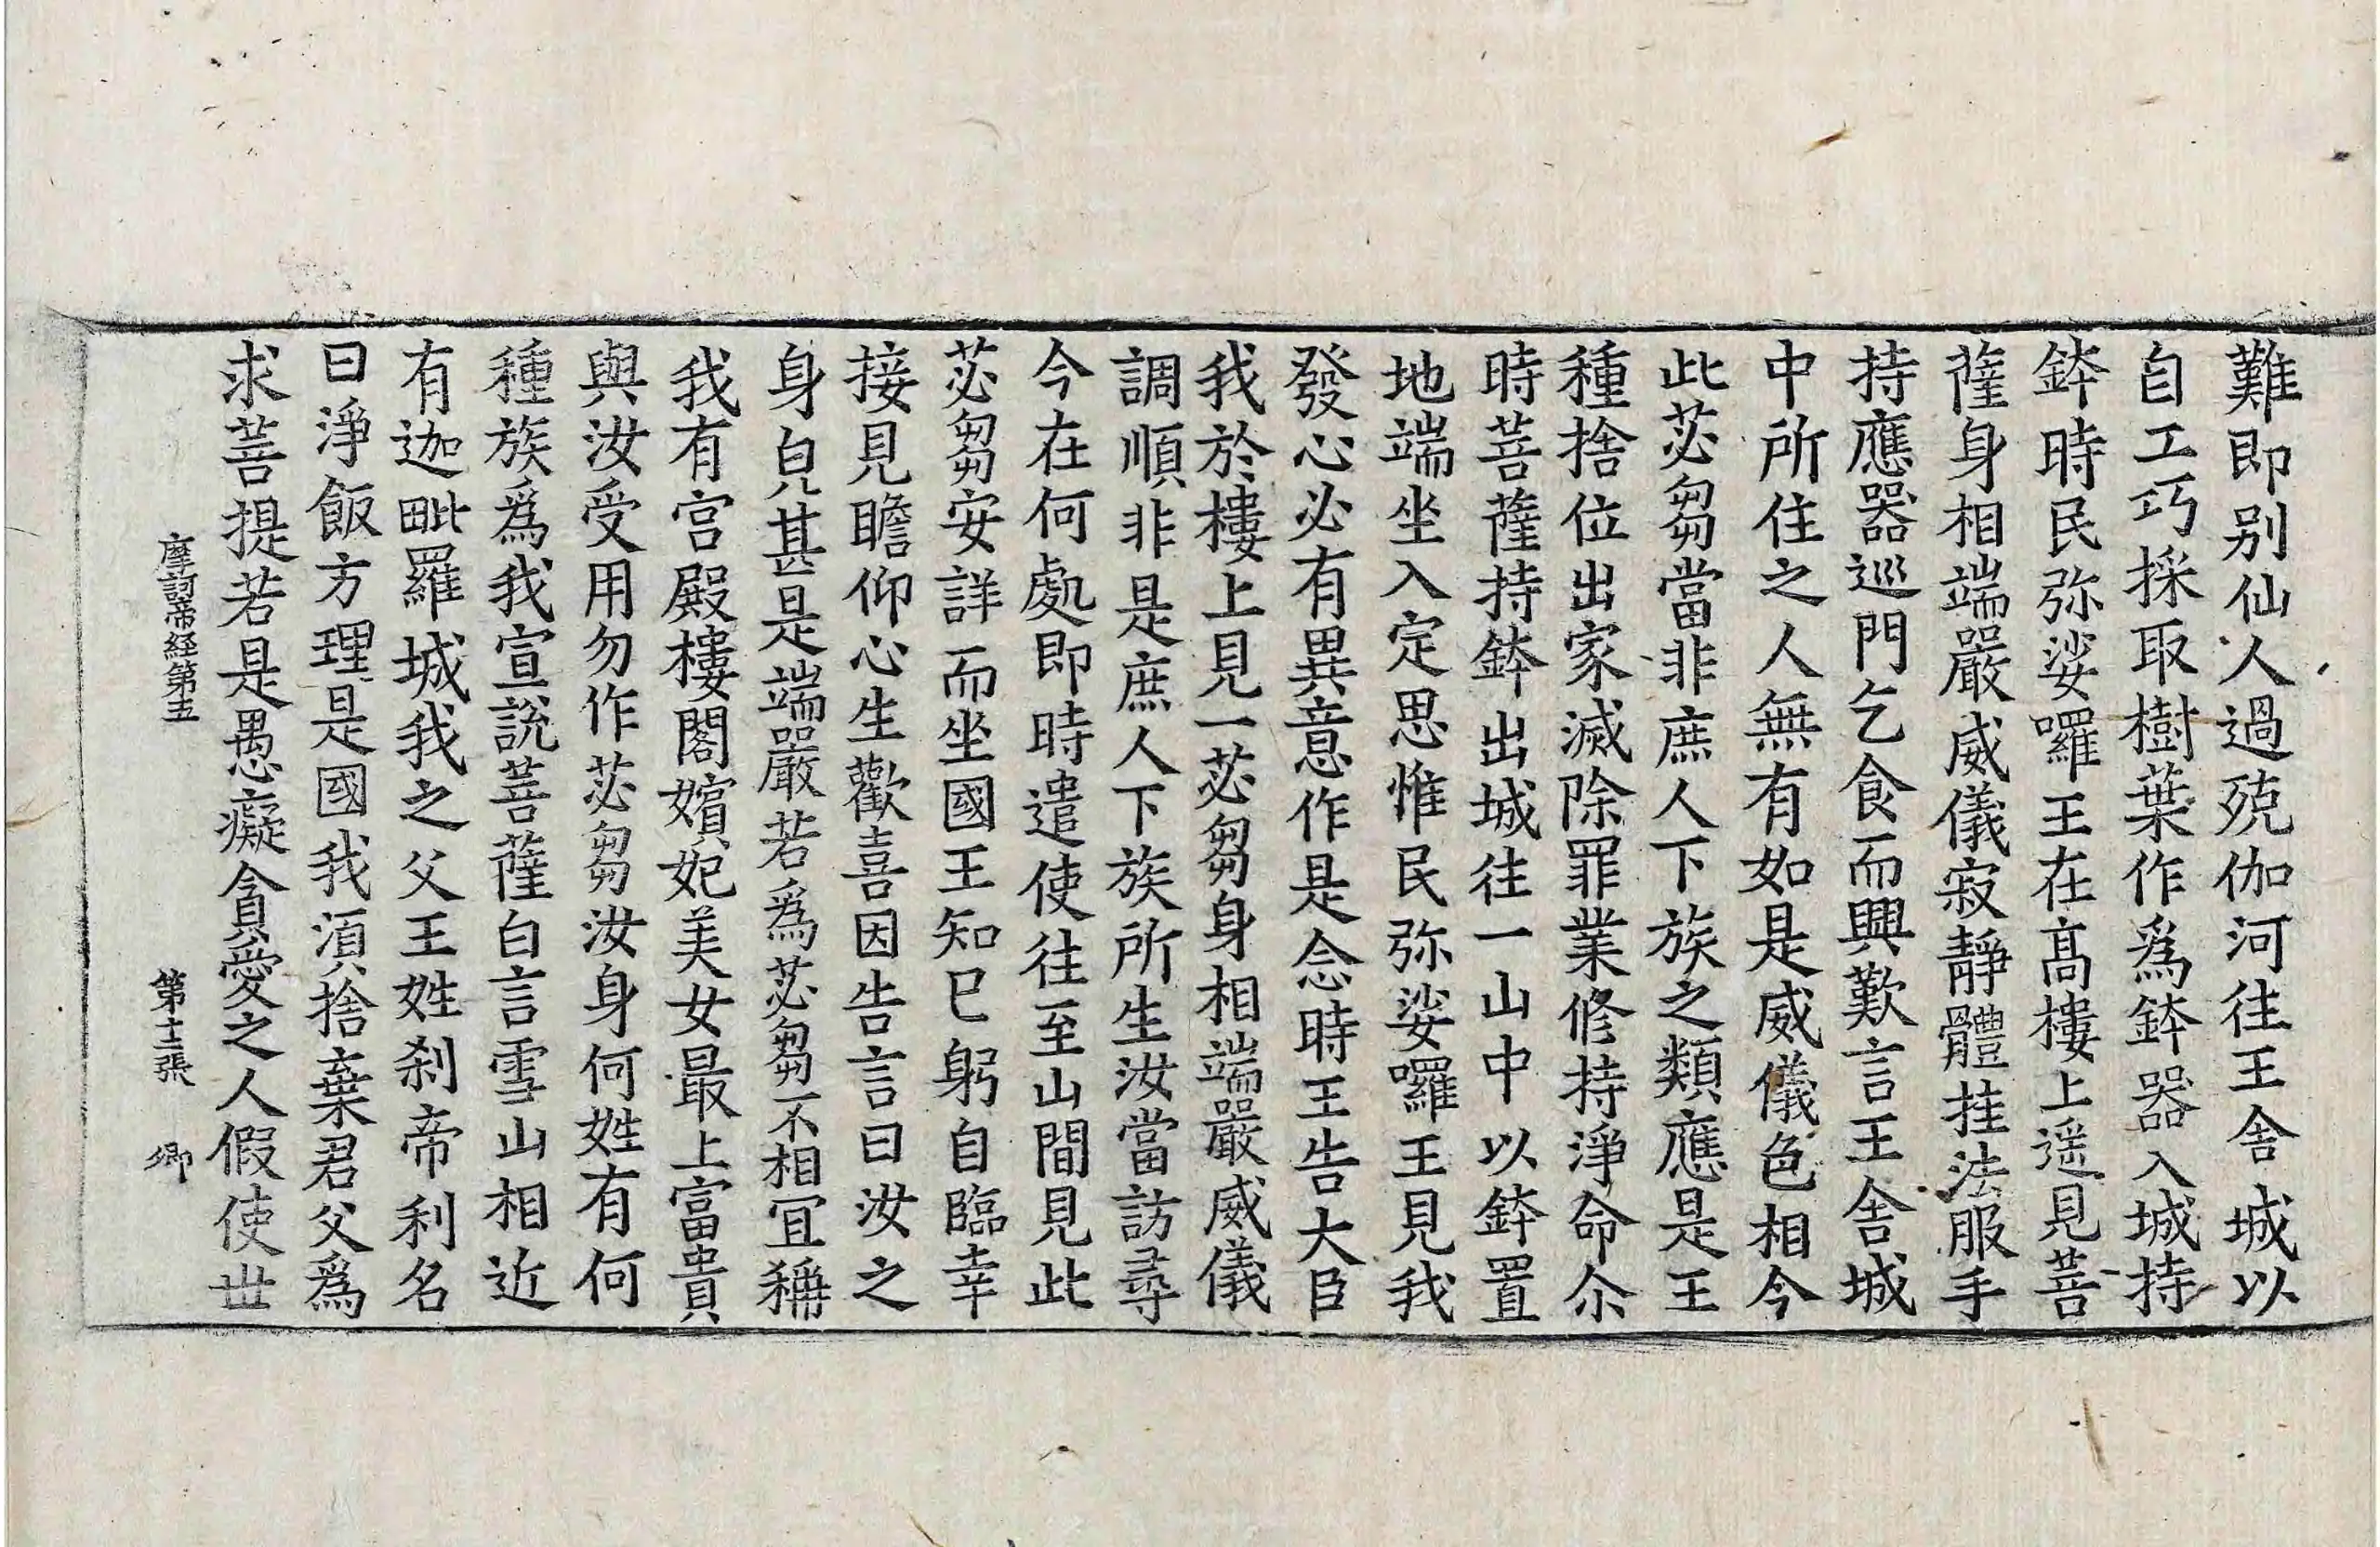 難即別仙人過殑伽河往王舍城以
自工巧採取樹葉作爲鉢器入城持
鉢時民弥娑囉王在髙樓上遥見菩
薩身相端嚴威儀寂靜體挂法服手
持應器巡門乞食而興歎言王舍城
中所住之人無有如是威儀色相今
此苾芻當非庶人下族之類應是王
種捨位出家滅除罪業修持淨命尒
時菩薩持鉢出城往一山中以鉢置
地端坐入定思惟民弥娑囉王見我
發心必有異意作是念時王告大臣
我於樓上見一苾芻身相端嚴威儀
調順非是庶人下族所生汝當訪尋
今在何處即時遣使往至山間見此
苾芻安詳而坐國王知已躬自臨幸
接見瞻仰心生歡喜因告言曰汝之
身皃甚是端嚴若爲苾芻不相冝稱
我有宫殿樓閣嬪妃美女最上富貴
與汝受用勿作苾芻汝身何姓有何
種族爲我宣說菩薩白言雪山相近
有迦毗羅城我之父王姓刹帝利名
曰淨飯方理是國我湏捨棄君父爲
求菩提若是愚癡貪愛之人假使丗
摩訶帝経第五　第十二張　卿